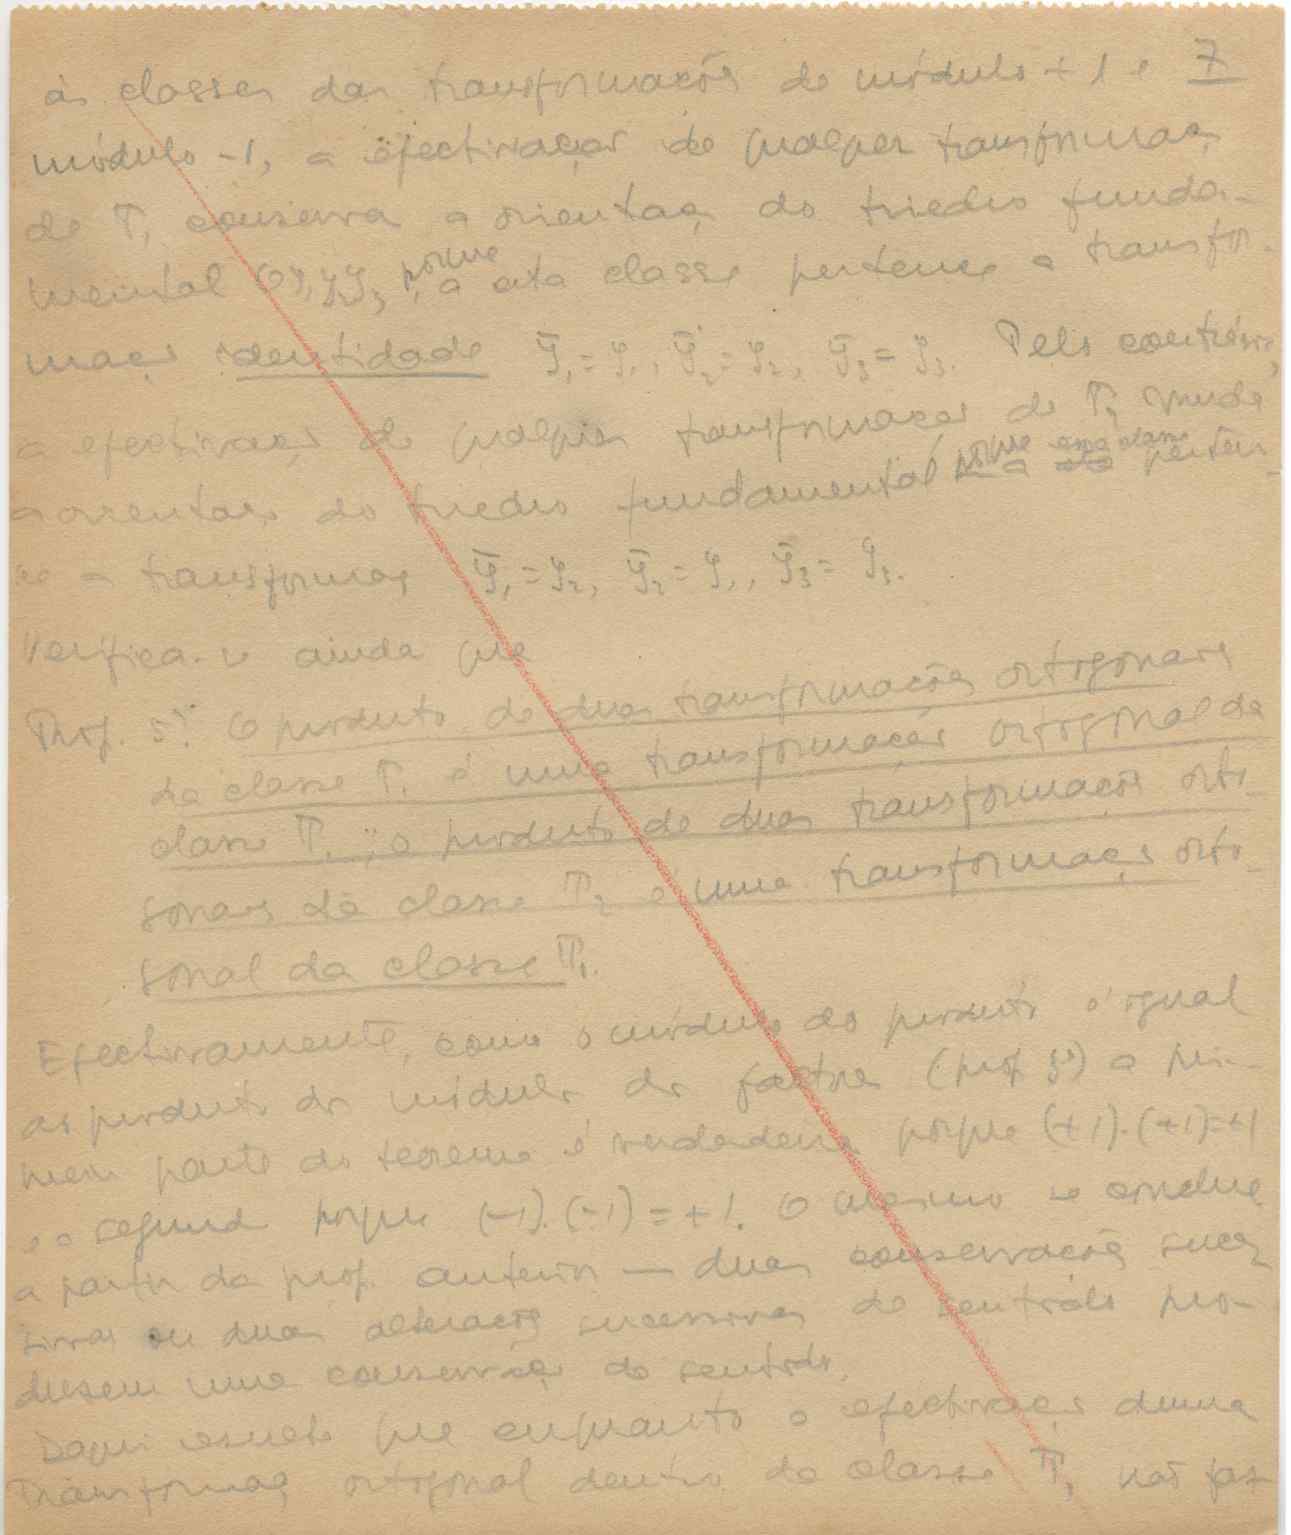 as classes das transformações de módulo +1 e 7
módulo -1, a efectivação de qualquer transformação
de T₁ conserva a orientação do triedro funda-
mental Oy₁y₂y₃, porque a esta classe pertence a transfor-
mação identidade ȳ₁ = y₁, ȳ₂ = y₂, ȳ₃ = y₃. Pelo contrário,
a efectivação de qualquer transformação de T₂ muda
a orientação do triedro fundamental porque a essa classe perten-
ce a transformação ȳ₁ = y₂, ȳ₂ = y₁, ȳ₃ = y₃.
Verifica-se ainda que
Prop. 5ª. O produto de duas transformações ortogonais
da classe T₁ é uma transformação ortogonal da
classe T₁; o produto de duas transformações orto-
gonais da classe T₂ é uma transformação orto-
gonal da classe T₁.
Efectivamente, como o módulo do produto é igual
ao produto dos módulos dos factores (prop. 3ª) a pri-
meira parte do teorema é verdadeira porque (+1).(+1)=+1
e a segunda porque (-1).(-1) = +1. O mesmo se conclue
a partir da prop. anterior — duas conservações suces-
sivas ou duas alterações sucessivas de sentido pro-
duzem uma conservação de sentido.
Daqui resulta que enquanto a efectivação duma
transformação ortogonal dentro da classe T₁ não faz